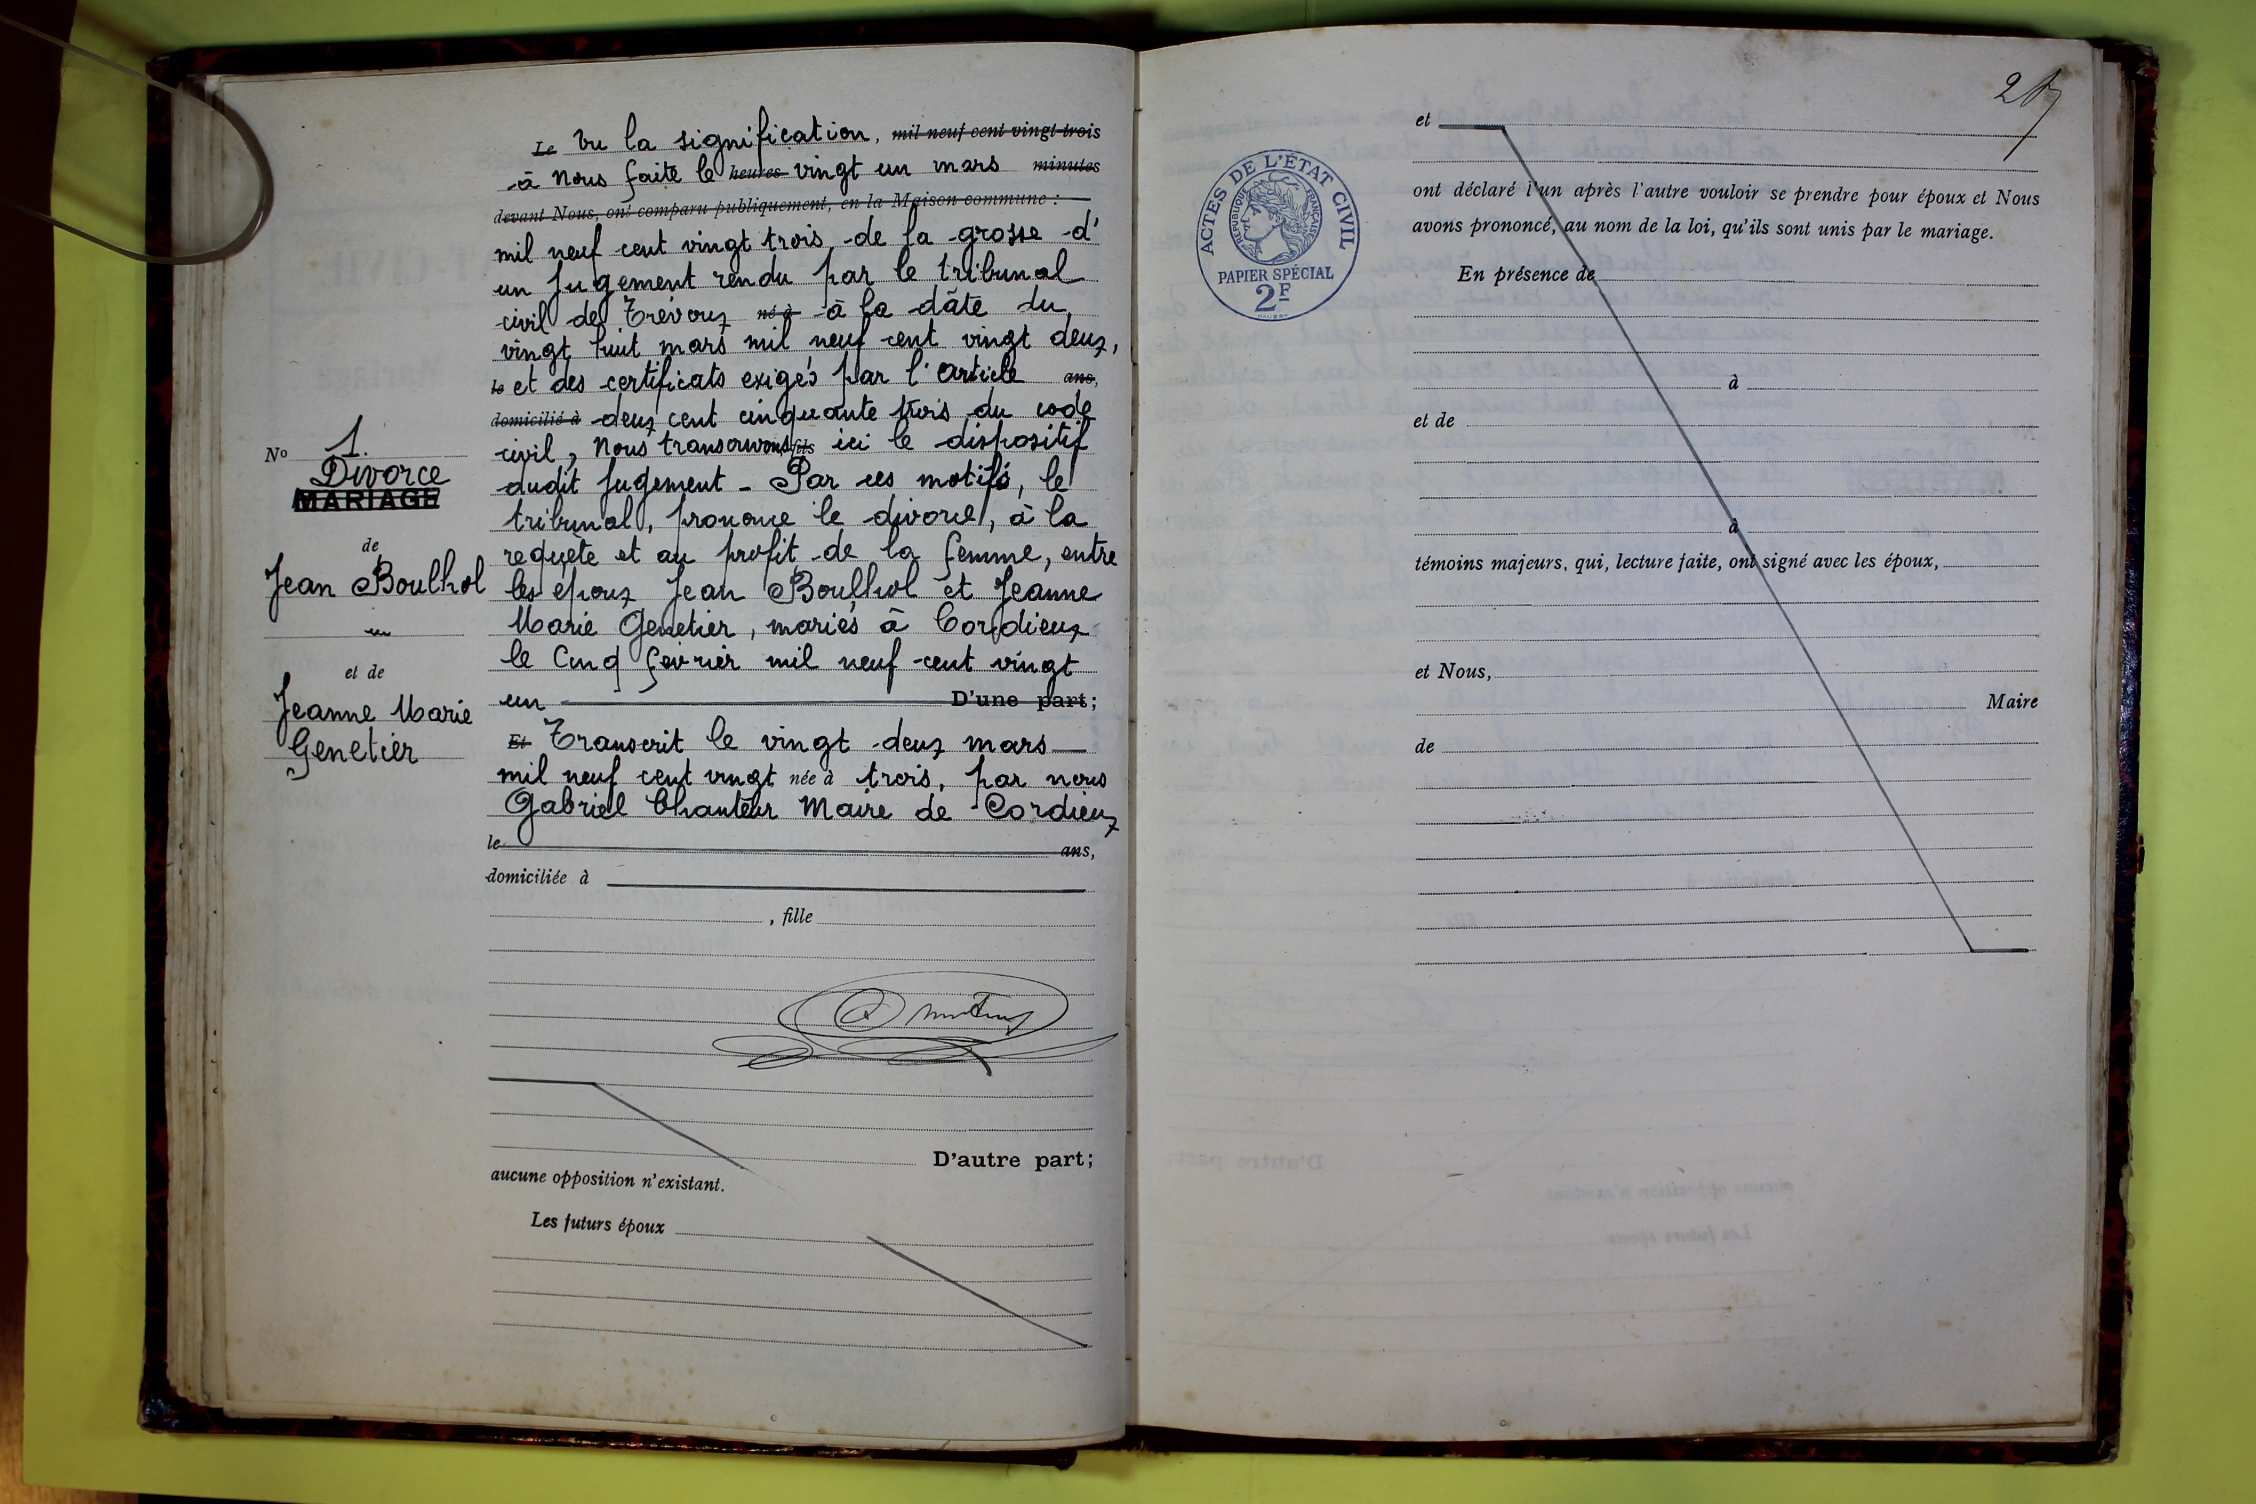 Le Vu la signification, mil neuf cent vingt-trois
à Nous faite le heures vingt un mars minutes
devant Nous, ont comparu publiquement, en la Maison commune :
mil neuf cent vingt trois, de la grosse d'
un jugement rendu par le tribunal
civil de Trévoux né à à la dâte du
vingt huit mars mil neuf cent vingt deux,
le et des certificats exigés par l'article ans,
domicilié à deux cent cinquante trois du code
civil, Nous transcrivons fils ici le dispositif
dudit jugement - Par ces motifs, le
tribunal, prononce le divorce, à la
requête et au profit de la femme, entre
les époux Jean Boulhol et Jeanne
Marie Genetier, mariés à Cordieux
le Cinq février mil neuf cent vingt
un D'une part;
Et Transcrit le vingt deux mars
mil neuf cent vingt née à trois, par nous
Gabriel Chanteur Maire de Cordieux
le ans,
domiciliée à
, fille
D'autre part;
aucune opposition n'existant.
Les futurs époux
No 1.
Divorce
MARIAGE
de
Jean Boulhol
et de
Jeanne Marie
Genetier
ACTES DE L'ÉTAT CIVIL
RÉPUBLIQUE FRANÇAISE
PAPIER SPÉCIAL
2F
et
ont déclaré l'un après l'autre vouloir se prendre pour époux et Nous
avons prononcé, au nom de la loi, qu'ils sont unis par le mariage.
En présence de
à
et de
à
témoins majeurs, qui, lecture faite, ont signé avec les époux,
et Nous,
Maire
de